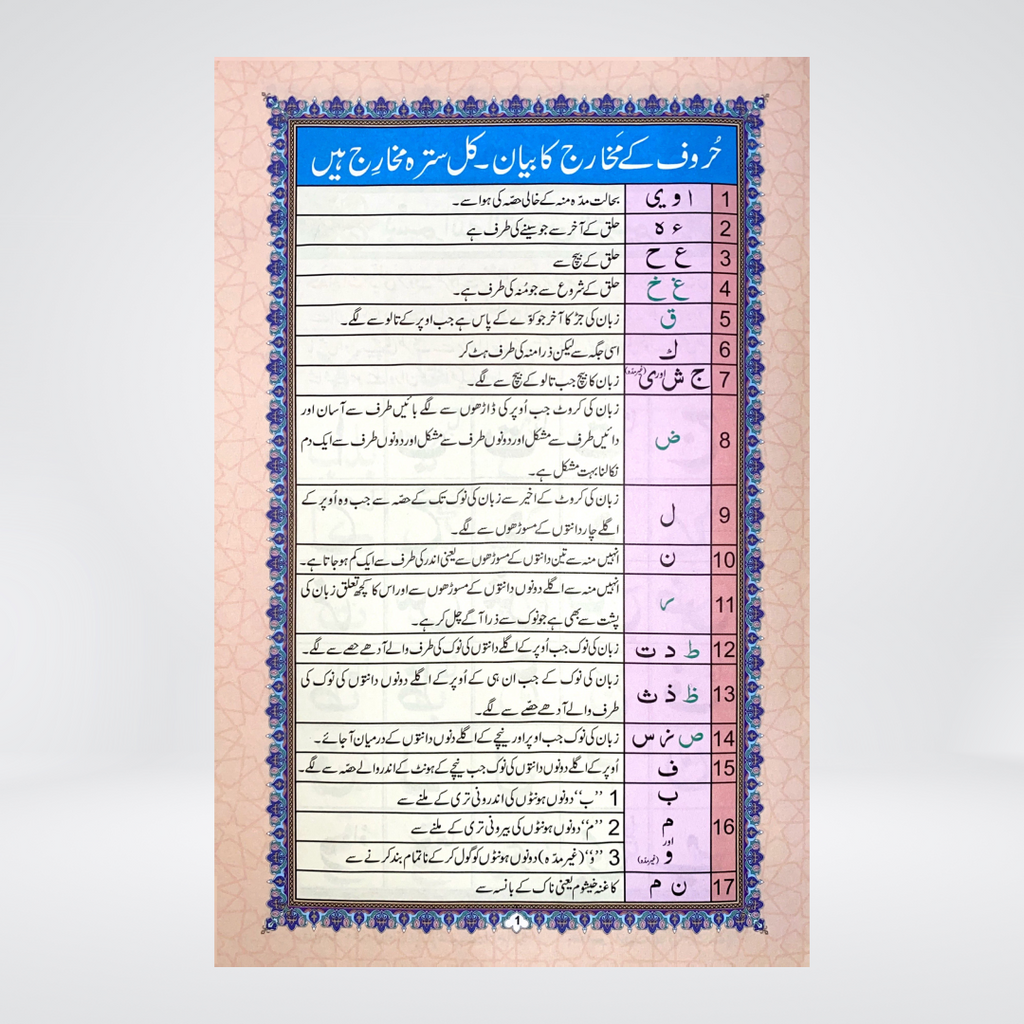 حُروف کے مَخارج کا بیان۔ کل سترہ مخارِج ہیں
1 ا و ی بحالت مدّہ منہ کے خالی حصّہ کی ہوا سے۔
2 ء ہ حلق کے آخر سے جو سینے کی طرف ہے
3 ع ح حلق کے بیچ سے
4 غ خ حلق کے شروع سے جو مُنہ کی طرف ہے۔
5 ق زبان کی جڑ کا آخر جو کوّے کے پاس ہے جب اوپر کے تالو سے لگے۔
6 ك اسی جگہ سے لیکن ذرا منہ کی طرف ہٹ کر
7 ج ش اور ی (غیر مدہ) زبان کا بیچ جب تالو کے بیچ سے لگے۔
8 ض زبان کی کروٹ جب اُوپر کی ڈاڑھوں سے لگے بائیں طرف سے آسان اور
دائیں طرف سے مشکل اور دونوں طرف سے مشکل اور دونوں طرف سے ایک دم
نکالنا بہت مشکل ہے۔
9 ل زبان کی کروٹ کے اخیر سے زبان کی نوک تک کے حصّہ سے جب وہ اُوپر کے
اگلے چار دانتوں کے مسوڑھوں سے لگے۔
10 ن انہیں منہ سے تین دانتوں کے مسوڑھوں سے یعنی اندر کی طرف سے ایک کم ہو جاتا ہے۔
11 ر انہیں منہ سے اگلے دونوں دانتوں کے مسوڑھوں سے اور اس کا کچھ تعلق زبان کی
پشت سے بھی ہے جو نوک سے ذرا آگے چل کر ہے۔
12 ط د ت زبان کی نوک جب اُوپر کے اگلے دانتوں کی نوک کی طرف والے آدھے حصے سے لگے۔
13 ظ ذ ث زبان کی نوک کے جب ان ہی کے اُوپر کے اگلے دونوں دانتوں کی نوک کی
طرف والے آدھے حصّے سے لگے۔
14 ص ز س زبان کی نوک جب اوپر اور نیچے کے اگلے دنوں دانتوں کے درمیان آ جائے۔
15 ف اُوپر کے اگلے دونوں دانتوں کی نوک جب نیچے کے ہونٹ کے اندر والے حصّہ سے لگے۔
16 ب 1 ’’ب‘‘ دونوں ہونٹوں کی اندرونی تری کے ملنے سے
م اور 2 ’’م‘‘ دونوں ہونٹوں کی بیرونی تری کے ملنے سے
و (غیر مدہ) 3 ’’وَ‘‘ (غیر مدّہ) دونوں ہونٹوں کو گول کر کے ناتمام بند کرنے سے
17 ن م کا غنہ خیشوم یعنی ناک کے بانسہ سے
1